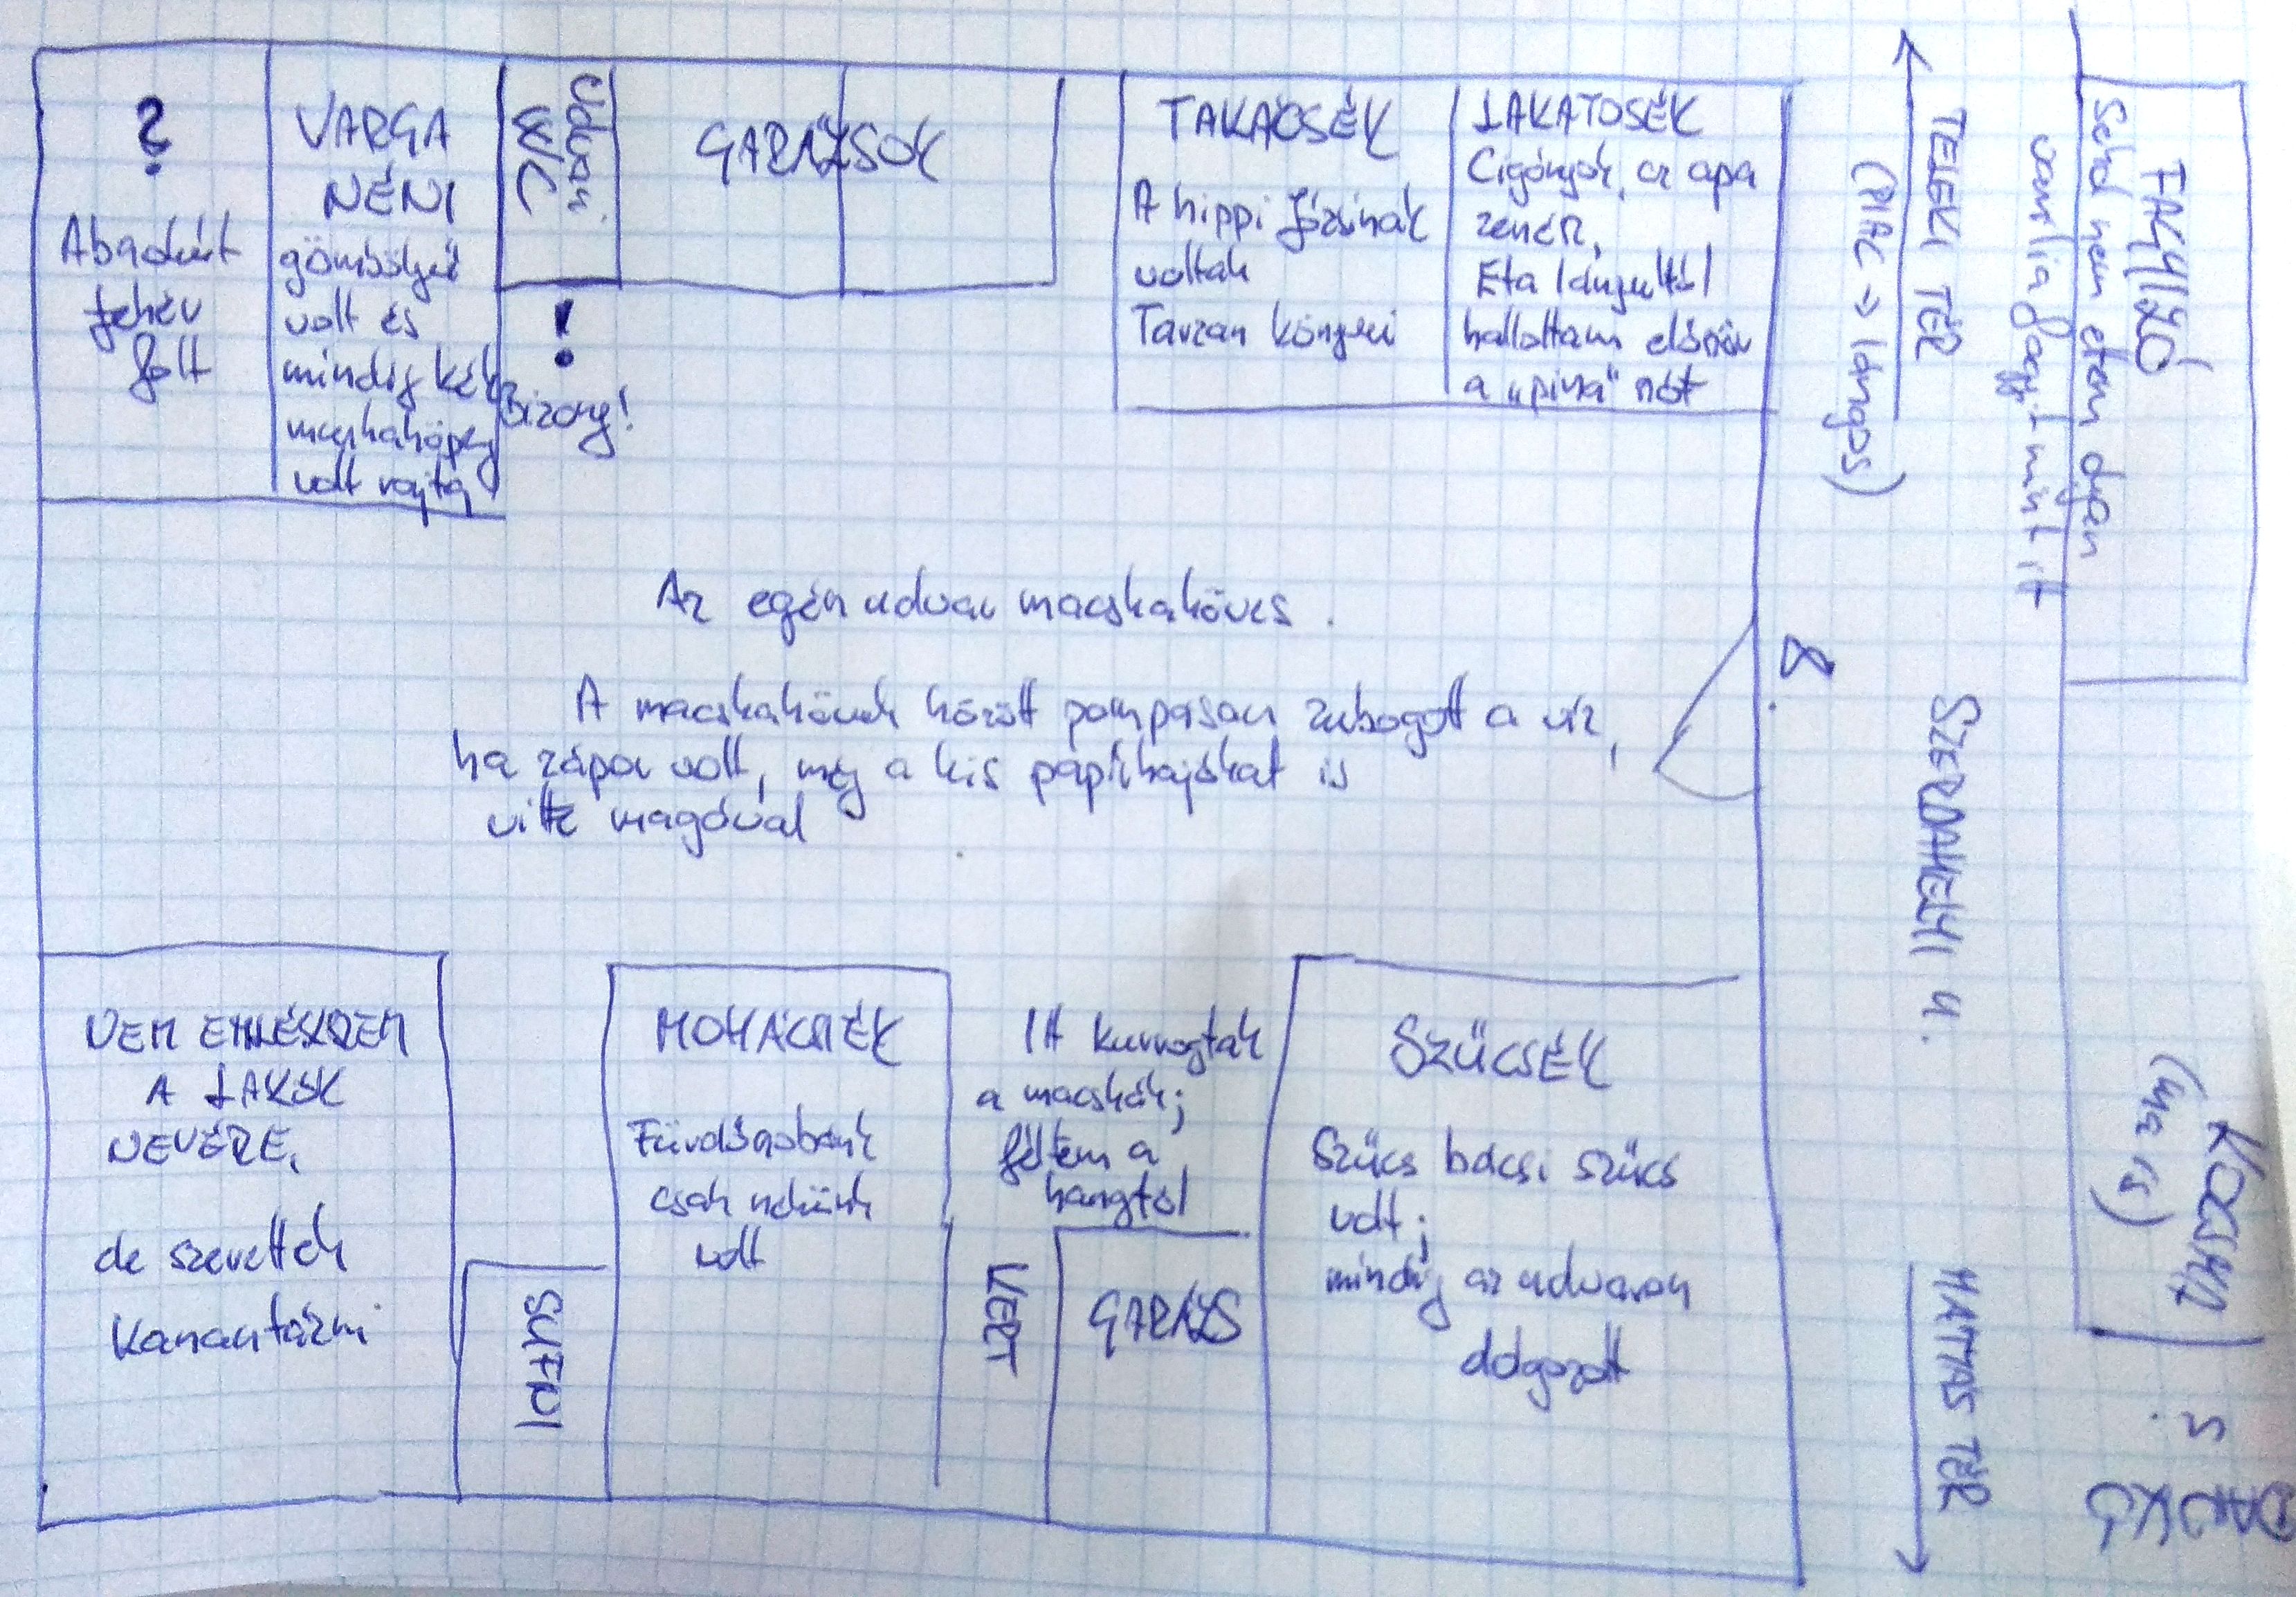 ?
Abszolút
fehér
folt
VARGA
NÉNI
gömbölyű
volt és
mindig kék
munkaköpeny
volt rajta
Udvari
WC
!
Bizony!
GARÁZSOK
TAKÁCSÉK
A hippi Józsinak
voltak
Tarzan könyvei
LAKATOSÉK
Cigányok, az apa
zenész,
Eta lányuktól
hallottam először
a „pina” szót
Az egész udvar macskaköves.
A macskakövek között pompásan zubogott a víz,
ha zápor volt, még a kis papírhajókat is
vitte magával
NEM EMLÉKSZEM
A LAKÓK
NEVÉRE,
de szerettek
Kanastázni
SUFNI
MOHÁCSIÉK
Fürdőszobánk
csak nekünk
volt
Itt kurrogtak
a macskák;
féltem a
hangtól
KERT
GARÁZS
SZŰCSÉK
Szűcs bácsi szűcs
volt;
mindig az udvaron
dolgozott
8.
TELEKI TÉR
(PIAC → lángos)
SZERDAHELYI U.
MÁTYÁS TÉR
FAGYIZÓ
Sehol nem ettem olyan
vanília fagyit mint itt
KOCSMA
(ma is)
DANKÓ